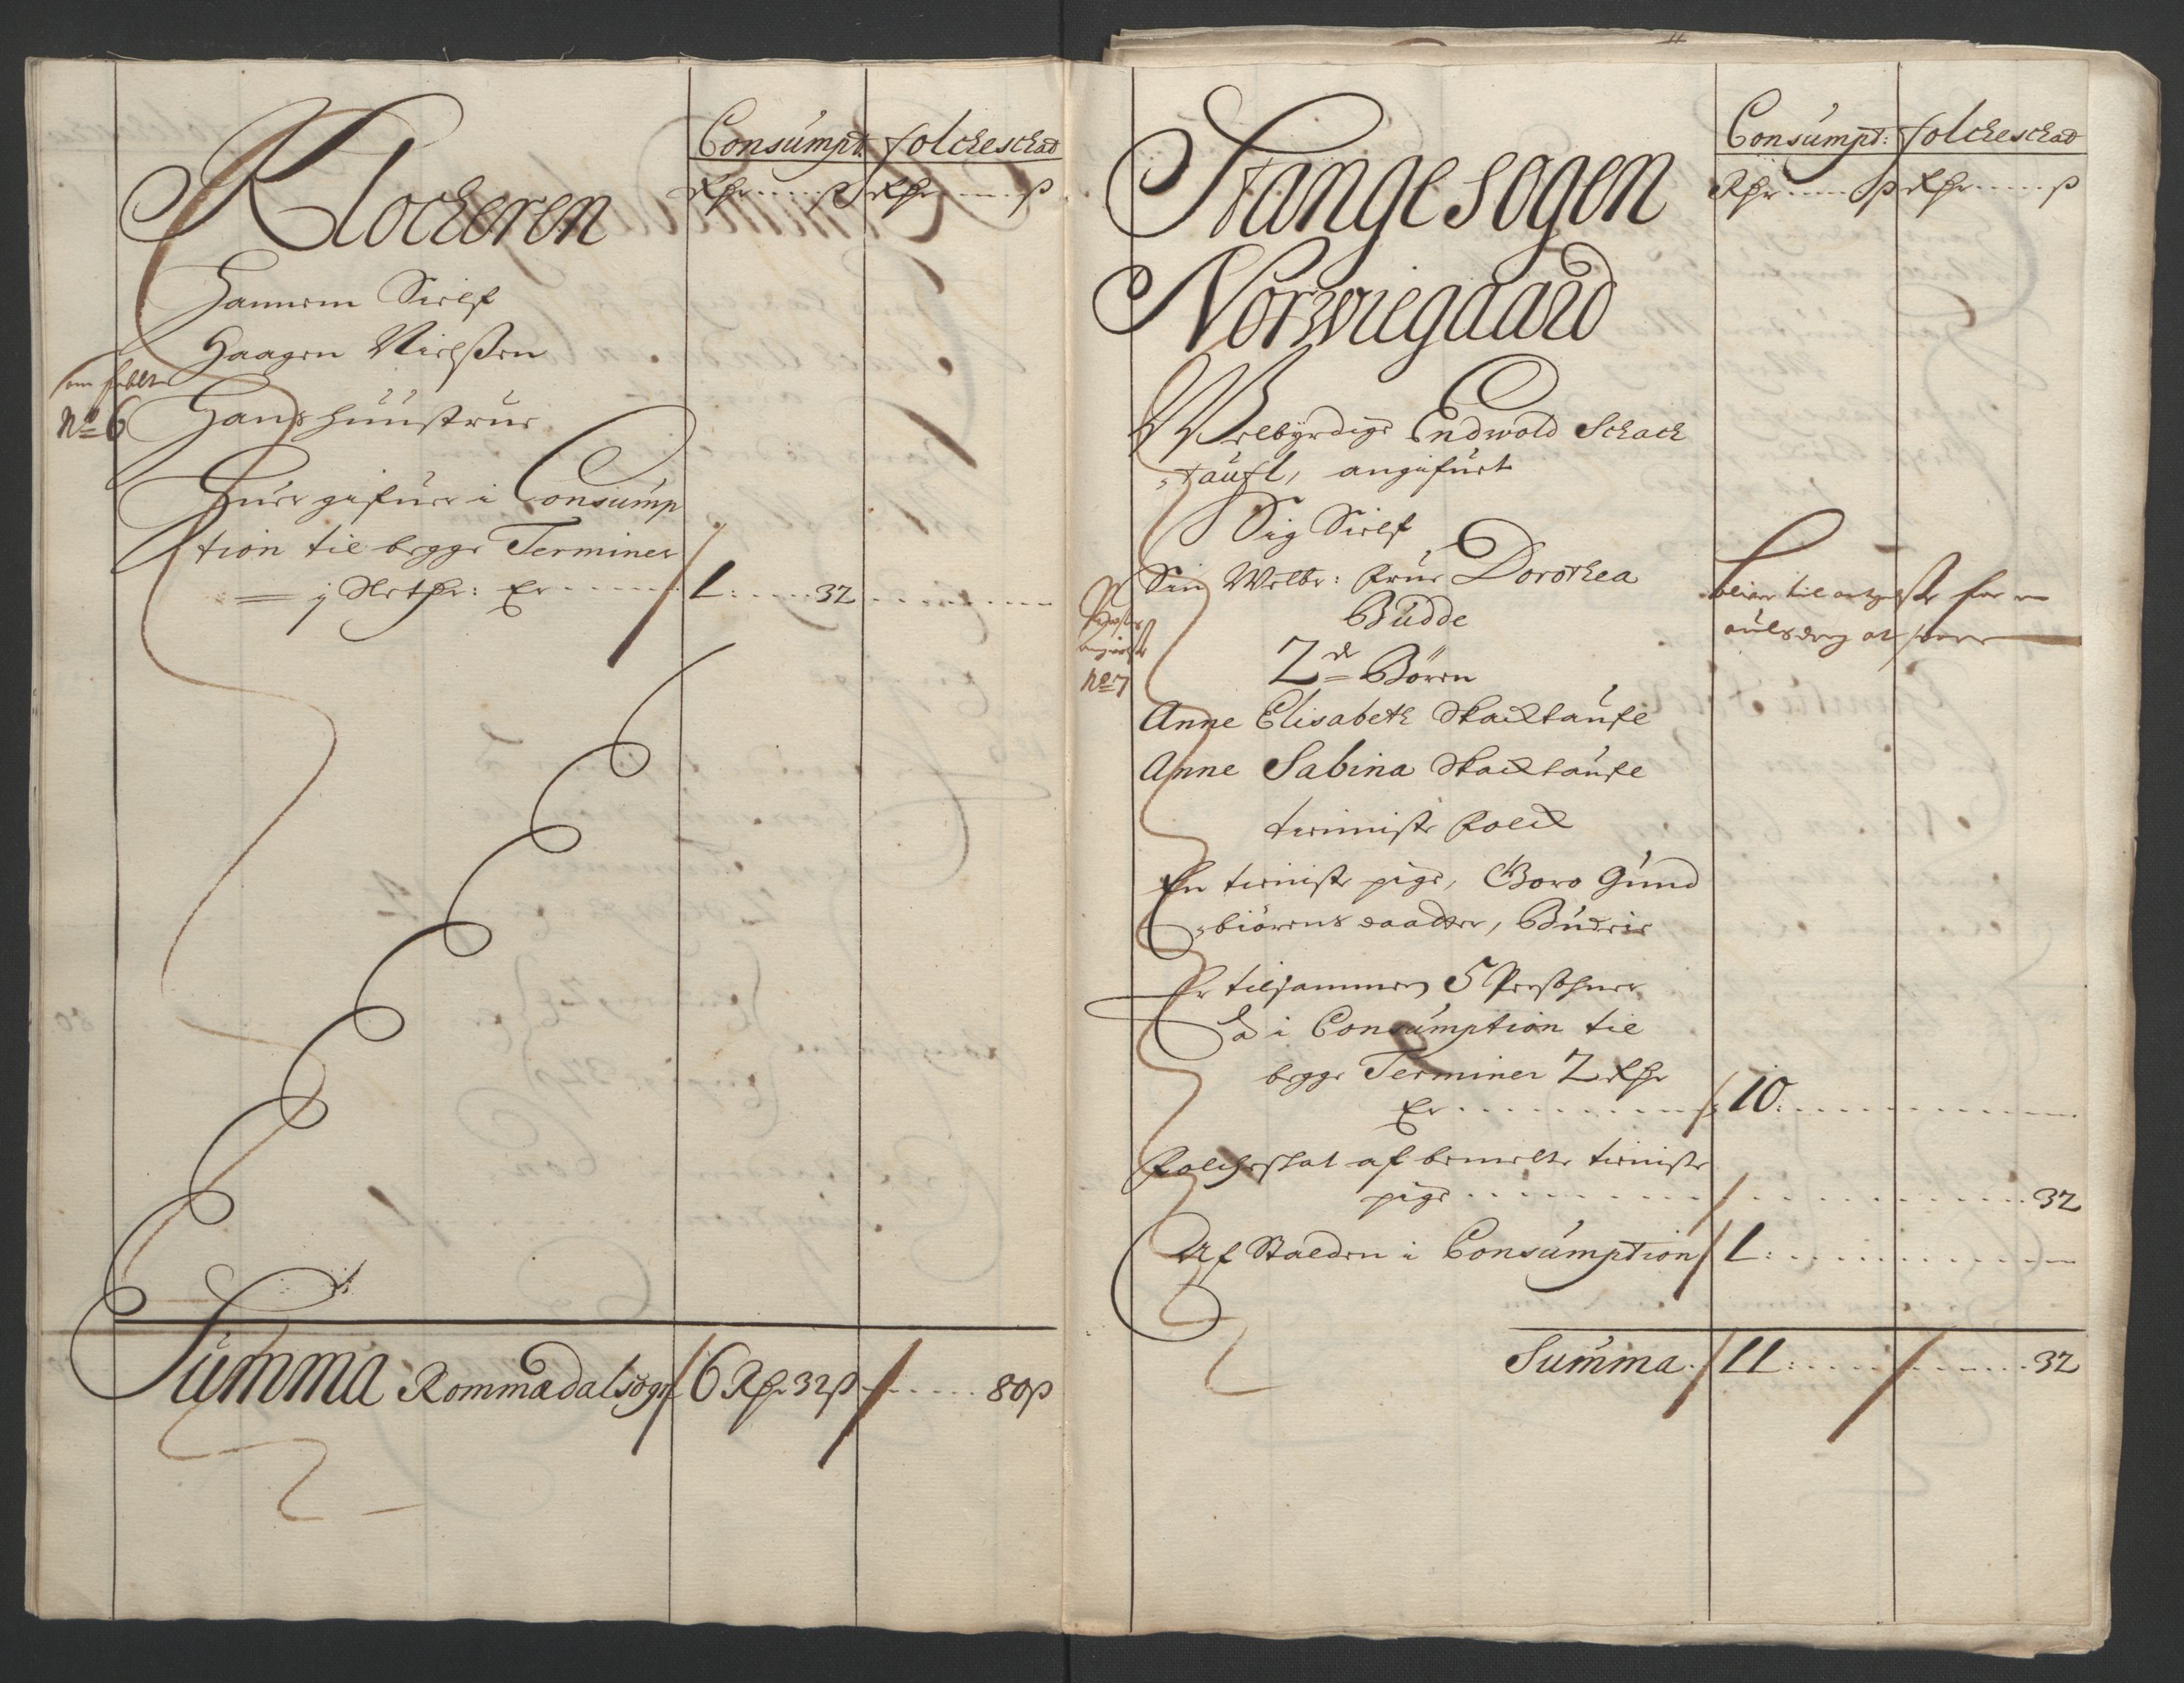 Consumpt: folckeschad
Rdr ß Rdr ß
Klockeren
Hannem Sielf
Haagen Nielßen
No 6
Hans Huustrue
Huer gifuer i Consump
tion til begge Terminer
Er 1: 32
Summa Rommedal sogn 6 Rdr 32 ß 80 ß
Consumpt: folckeschad
Rdr ß Rdr ß
Stange sogen
Norwiegaard
Welbyrdige Endwold Schack
taufl, angifuet
Sig Sielf
Sin Welbr: Frue Dorothea
Budde
No 7
2de Börn
Anne Elisabeth Stacktaufl
Anne Sabina Stacktaufl
tienniste Folck
En tieniste pige, Goro Gund
biörens daatter, Budeie
Er tilsammen 5 Persohner
a i Consumption til
begge Terminer 2 Rdr
Er 10:
Folcheskat af bemelte tieniste
pige 32
Af Stalden i Consumption 1:
Summa 11: 32